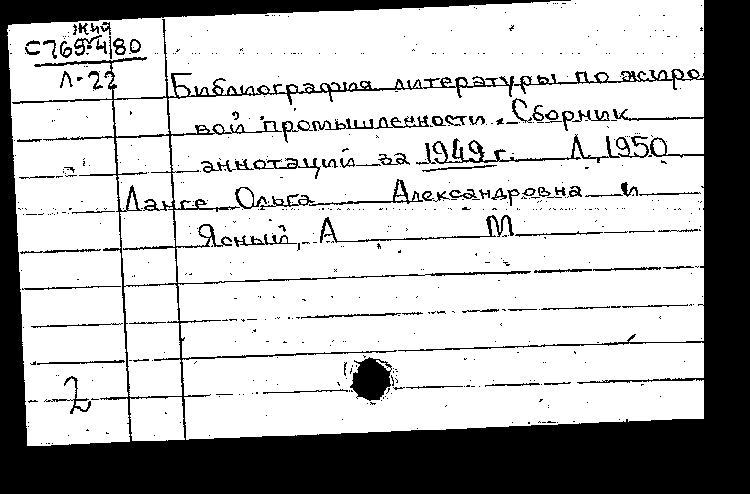 жий
С769-480
Л-22
Библиография литературы по жиро
вой промышленности. Сборник
аннотаций за 1949 г. Л, 1950
Ланге, Ольга Александровна и
Ясный, А М
2